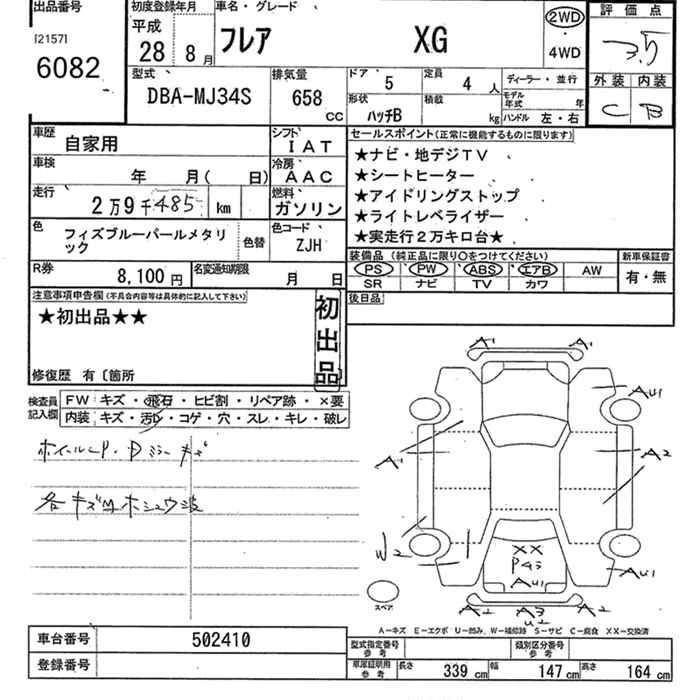 出品番号 初度登録年月 車名・グレード 評価点
[2157]
6082
平成 28 8月
フレア XG
2WD
・
4WD
3.5
外装 内装
C B
型式 排気量 ドア 5 定員 4 人 ディーラー・並行
DBA-MJ34S 658 CC
形状 ハッチB 積載 kg モデル年式 年
ハンドル 左・右
車歴 自家用 シフト IAT
セールスポイント(正常に機能するものに限ります)
車検 年 月( 日) 冷房 AAC
走行 2万9千485 km 燃料 ガソリン
★ナビ・地デジTV
★シートヒーター
★アイドリングストップ
★ライトレベライザー
★実走行2万キロ台★
色 フィズブルーパールメタリック 色替 色コード ZJH
装備品(純正品に限り○をつけてください) 新車保証書
PS PW ABS エアB AW 有・無
SR ナビ TV カワ
R券 8,100円 名変通知期限 月 日
後日品
注意事項申告欄(不具合内容等は具体的に記入して下さい)
★初出品★★
初出品
修復歴 有〔箇所 〕
検査員記入欄
FW キズ・飛石・ヒビ割・リペア跡・×要
内装 キズ・汚れ・コゲ・穴・スレ・キレ・破レ
ホイールCP・Dミラーキズ
各キズ
A1 A1
AU1
A1 A2
W2
XX
AU1
AU1
スペア
A2 A3 A2
U2
A-キズ E-エクボ U-凹み W-補修跡 S-サビ C-腐食 XX-交換済
車台番号 502410
登録番号
型式指定番号参考 類別区分番号参考
車庫証明用参考 長さ 339cm 幅 147cm 高さ 164cm